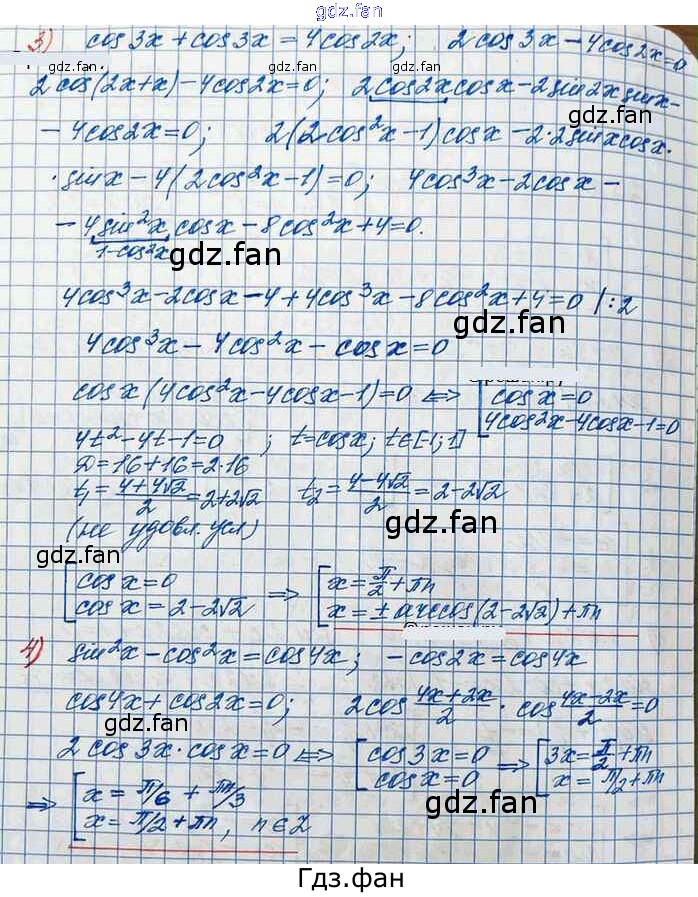 gdz.fan
3) cos3x + cos3x = 4cos2x; 2cos3x - 4cos2x = 0
2cos(2x+x) - 4cos2x = 0; 2cos2x cosx - 2sin2x sinx -
gdz.fan
gdz.fan
- 4cos2x = 0; 2(2cos²x - 1)cosx - 2·2sinxcosx·
· sinx - 4(2cos²x - 1) = 0; 4cos³x - 2cosx -
- 4sin²x cosx - 8cos²x + 4 = 0.
1-cos²x
gdz.fan
gdz.fan
4cos³x - 2cosx - 4 + 4cos³x - 8cos²x + 4 = 0 | : 2
gdz.fan
4cos³x - 4cos²x - cosx = 0
cosx (4cos²x - 4cosx - 1) = 0 <=> [ cosx = 0
4cos²x - 4cosx - 1 = 0
4t² - 4t - 1 = 0 ; t = cosx; t∈[-1; 1]
D = 16 + 16 = 2·16
t₁ = (4+4√2)/2 = 2+2√2 t₂ = (4-4√2)/2 = 2-2√2
(не удовл. усл)
gdz.fan
gdz.fan
[ cosx = 0 => [ x = π/2 + πn
cosx = 2-2√2 x = ± arccos(2-2√2) + πn
4) sin²x - cos²x = cos4x; - cos2x = cos4x
cos4x + cos2x = 0; 2cos (4x+2x)/2 · cos (4x-2x)/2 = 0
gdz.fan
gdz.fan
2cos3x · cosx = 0 <=> [ cos3x = 0 => [ 3x = π/2 + πn
cosx = 0 x = π/2 + πn
=> [ x = π/6 + πn/3
x = π/2 + πn, n∈Z
gdz.fan
gdz.fan
Гдз.фан